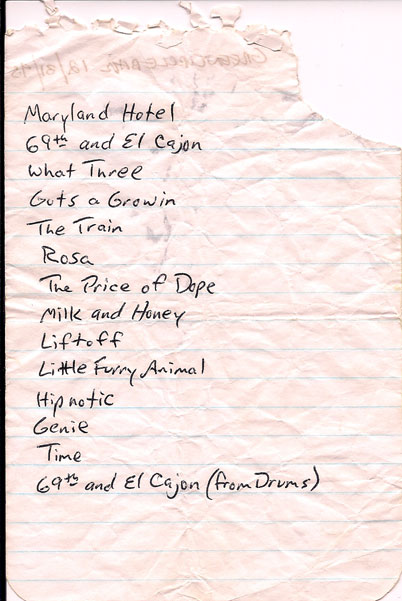 Maryland Hotel
69th and El Cajon
What Three
Guts a Growin
The Train
Rosa
The Price of Dope
Milk and Honey
Liftoff
Little Furry Animal
Hipnotic
Genie
Time
69th and El Cajon (from Drums)